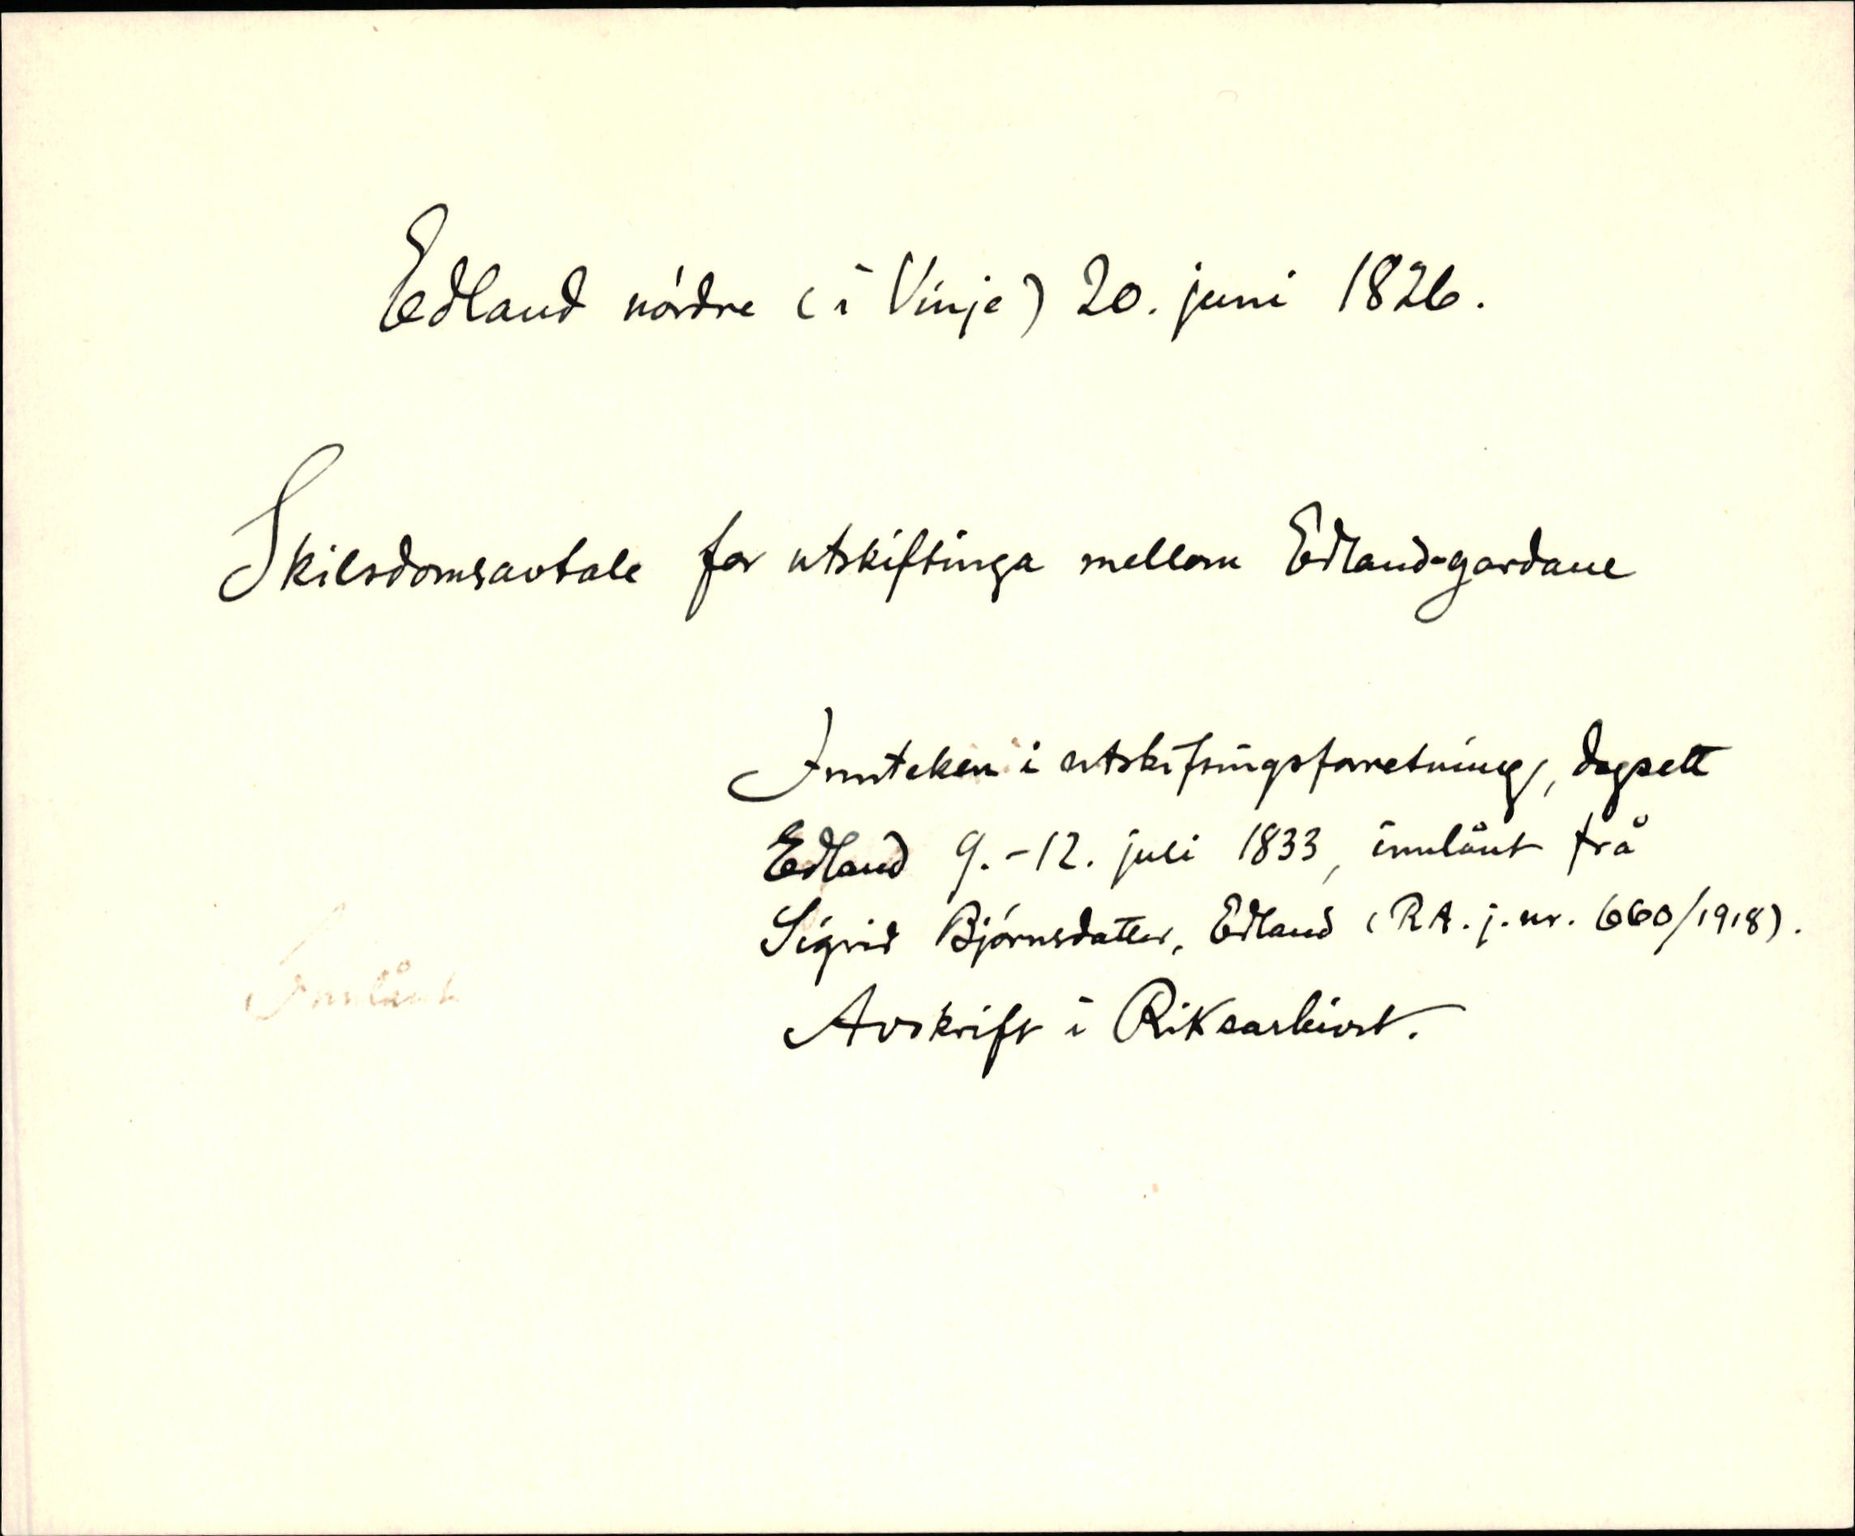 Edland nórdre (i Vinje) 20. juni 1826.
Skilsdomsavtale for utskiftinga mellom Edland-gardane
Innteken i utskifingsforretning, dagsett
Edland 9.-12. juli 1833, innlånt frå
Sigrid Bjórnsdatter, Edland (RA. j. nr. 660/1918).
Innlånt
Avskrift i Riksarkivet.